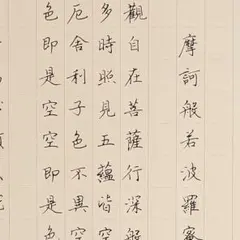 摩訶般若波羅蜜
觀自在菩薩行深般
多時照見五蘊皆空
厄舍利子色不異空
色即是空空即是色